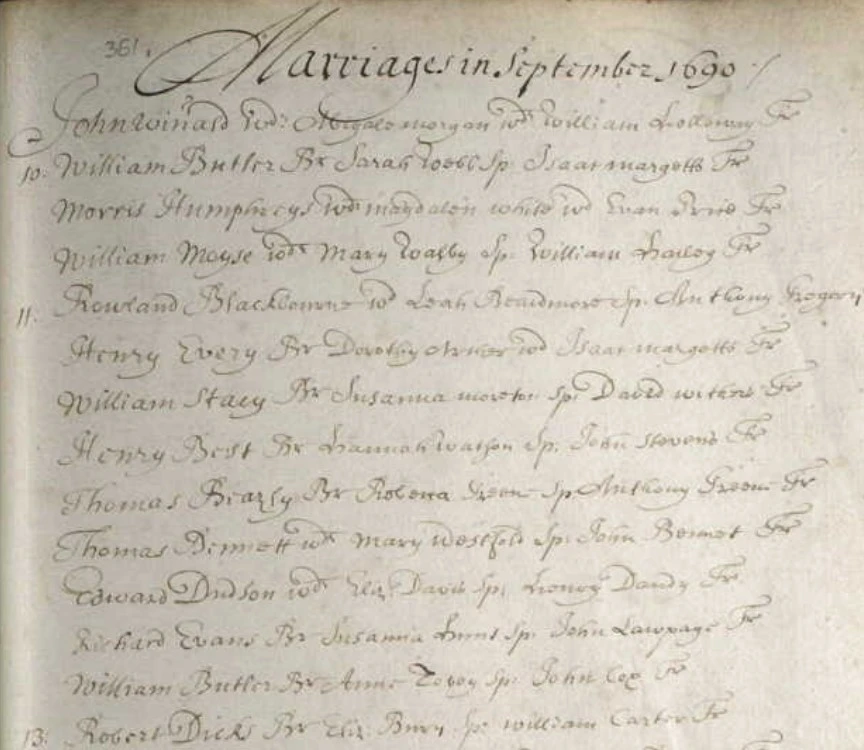 361.
Marriages in September 1690
John Winard wdr Abigale morgan wd William Holloway Fr
10: William Butler Br Sarah Webb Sp: Isaac margetts Fr
Morris Humphreys wdr magdalen white wd Evan Price Fr
William Moyse wdr Mary Sp: William Hailey Fr
11: Rowland Blackbourne wdr Leah Beardmore Sp: Anthony Gregory
Henry Every Br Dorothy wd Isaac margetts Fr
William Stacy Br Susanna moreton Sp: David withers Fr
Henry Best Br Hannah watson Sp: John Stevens Fr
Thomas Br Rebecca Greene Sp: Anthony Greene Fr
Thomas Bennett wdr Mary Sp: John Bennet Fr
Edward Dudson wdr Eliz: Davis Sp: Henry Dandy Fr
Richard Evans Br Susanna Hunt Sp: John Lawpage Fr
William Butler Br Anne Sp: John Cox Fr
13: Robert Dicks Br Eliz: Bury Sp: william Carter Fr